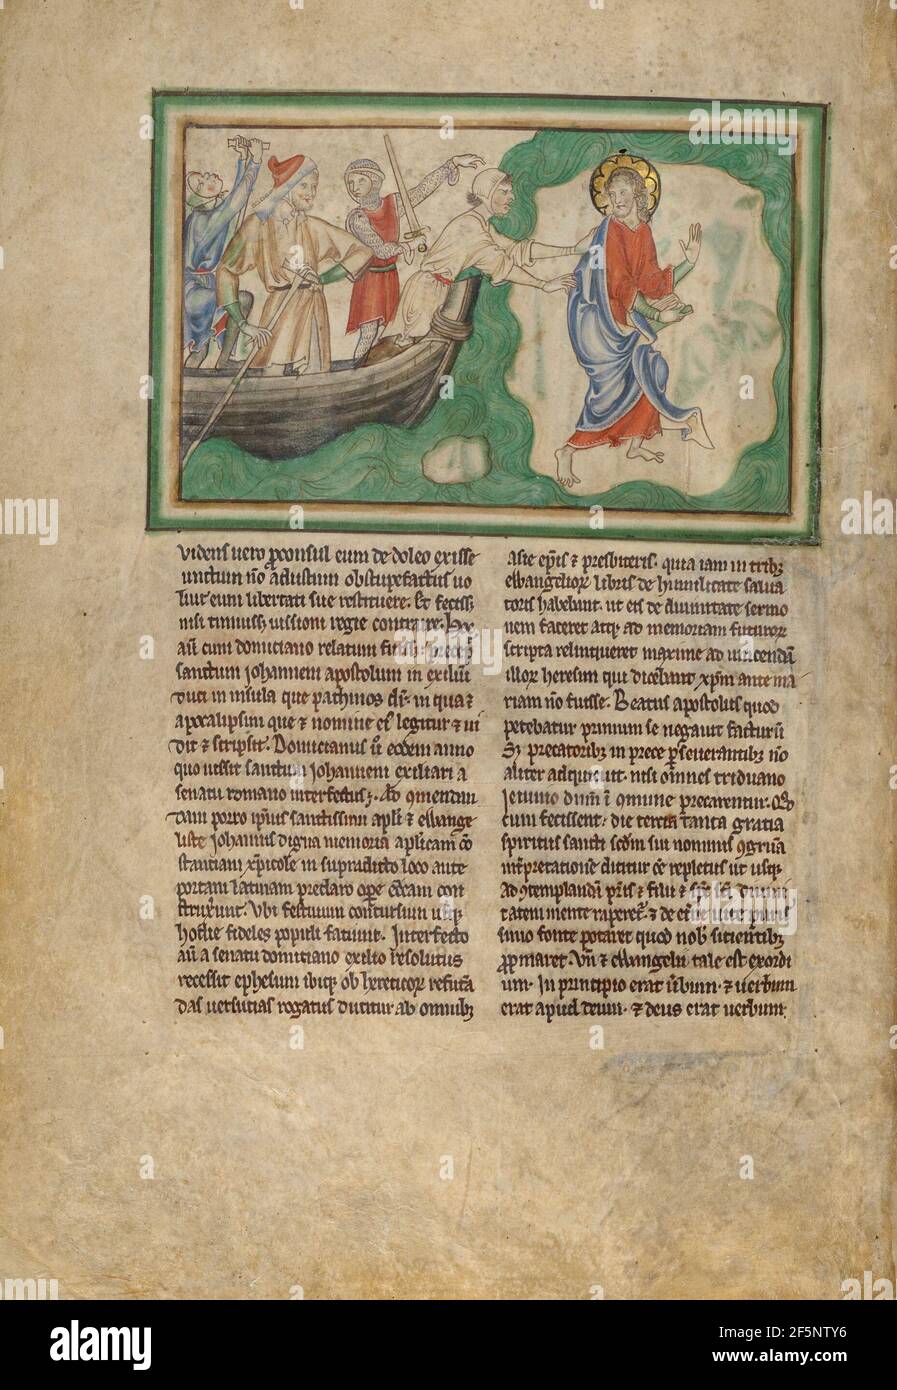 videns uero proconsul eum de doleo exisse
unctum non adustum obstupefactus uo
luit eum libertati sue restituere. Et fecisset
nisi timuisset iussioni regie contraire. hec
autem cum domiciano relatum
sanctum johannem apostolum in exilium
duci in insula que pathmos dicitur. in qua et
apocalipsim que ex nomine eius legitur et ui
dit et scripsit. Domicianus uero eodem anno
quo iussit sanctum johannem exiliari a
senatu romano interfectus est. Ad
dam porro ipsius sanctissimi apostoli et ewange
liste johannis digna memoria
in supradicto loco ante
portam latinam preclaro opere con
struxerunt. Vbi festiuum concursum usque
hodie fideles populi faciunt. Interfecto
autem a senatu domiciano exilio resolutus
recessit ephesum ibique ob hereticorum refutan
das uersutias rogatus ducitur ab omnibus
asie episcopis et presbiteris. qua iam in tribus
ewangeliorum libris de humilitate salua
toris habebunt. ut eis de diuinitate sermo
nem faceret atque ad memoriam futurorum
scripta relinqueret maxime ad uincendam
illorum heresim qui dicebant christum ante ma
riam non fuisse. Beatus apostolus quod
petebatur primum se negauit facturum
Set precatoribus in prece perseuerantibus non
aliter nisi omnes triduano
jeiunio dominum in commune precarentur. Quod
cum fecissent. die tercia tanta gratia
spiritus sancti secundum sui nominis congruam
interpretatione dicitur esse repletus ut usque
ad contemplandam patris et filii et spiritus sancti diuini
tatem mente raperetur. et de
simo fonte potaret quod nobis sitientibus
propinaret. Vnde et ewangelii tale est exordi
um. In principio erat uerbum. et uerbum
erat apud deum. et deus erat uerbum.
alamy
Image ID: 2F5NTY6
www.alamy.com